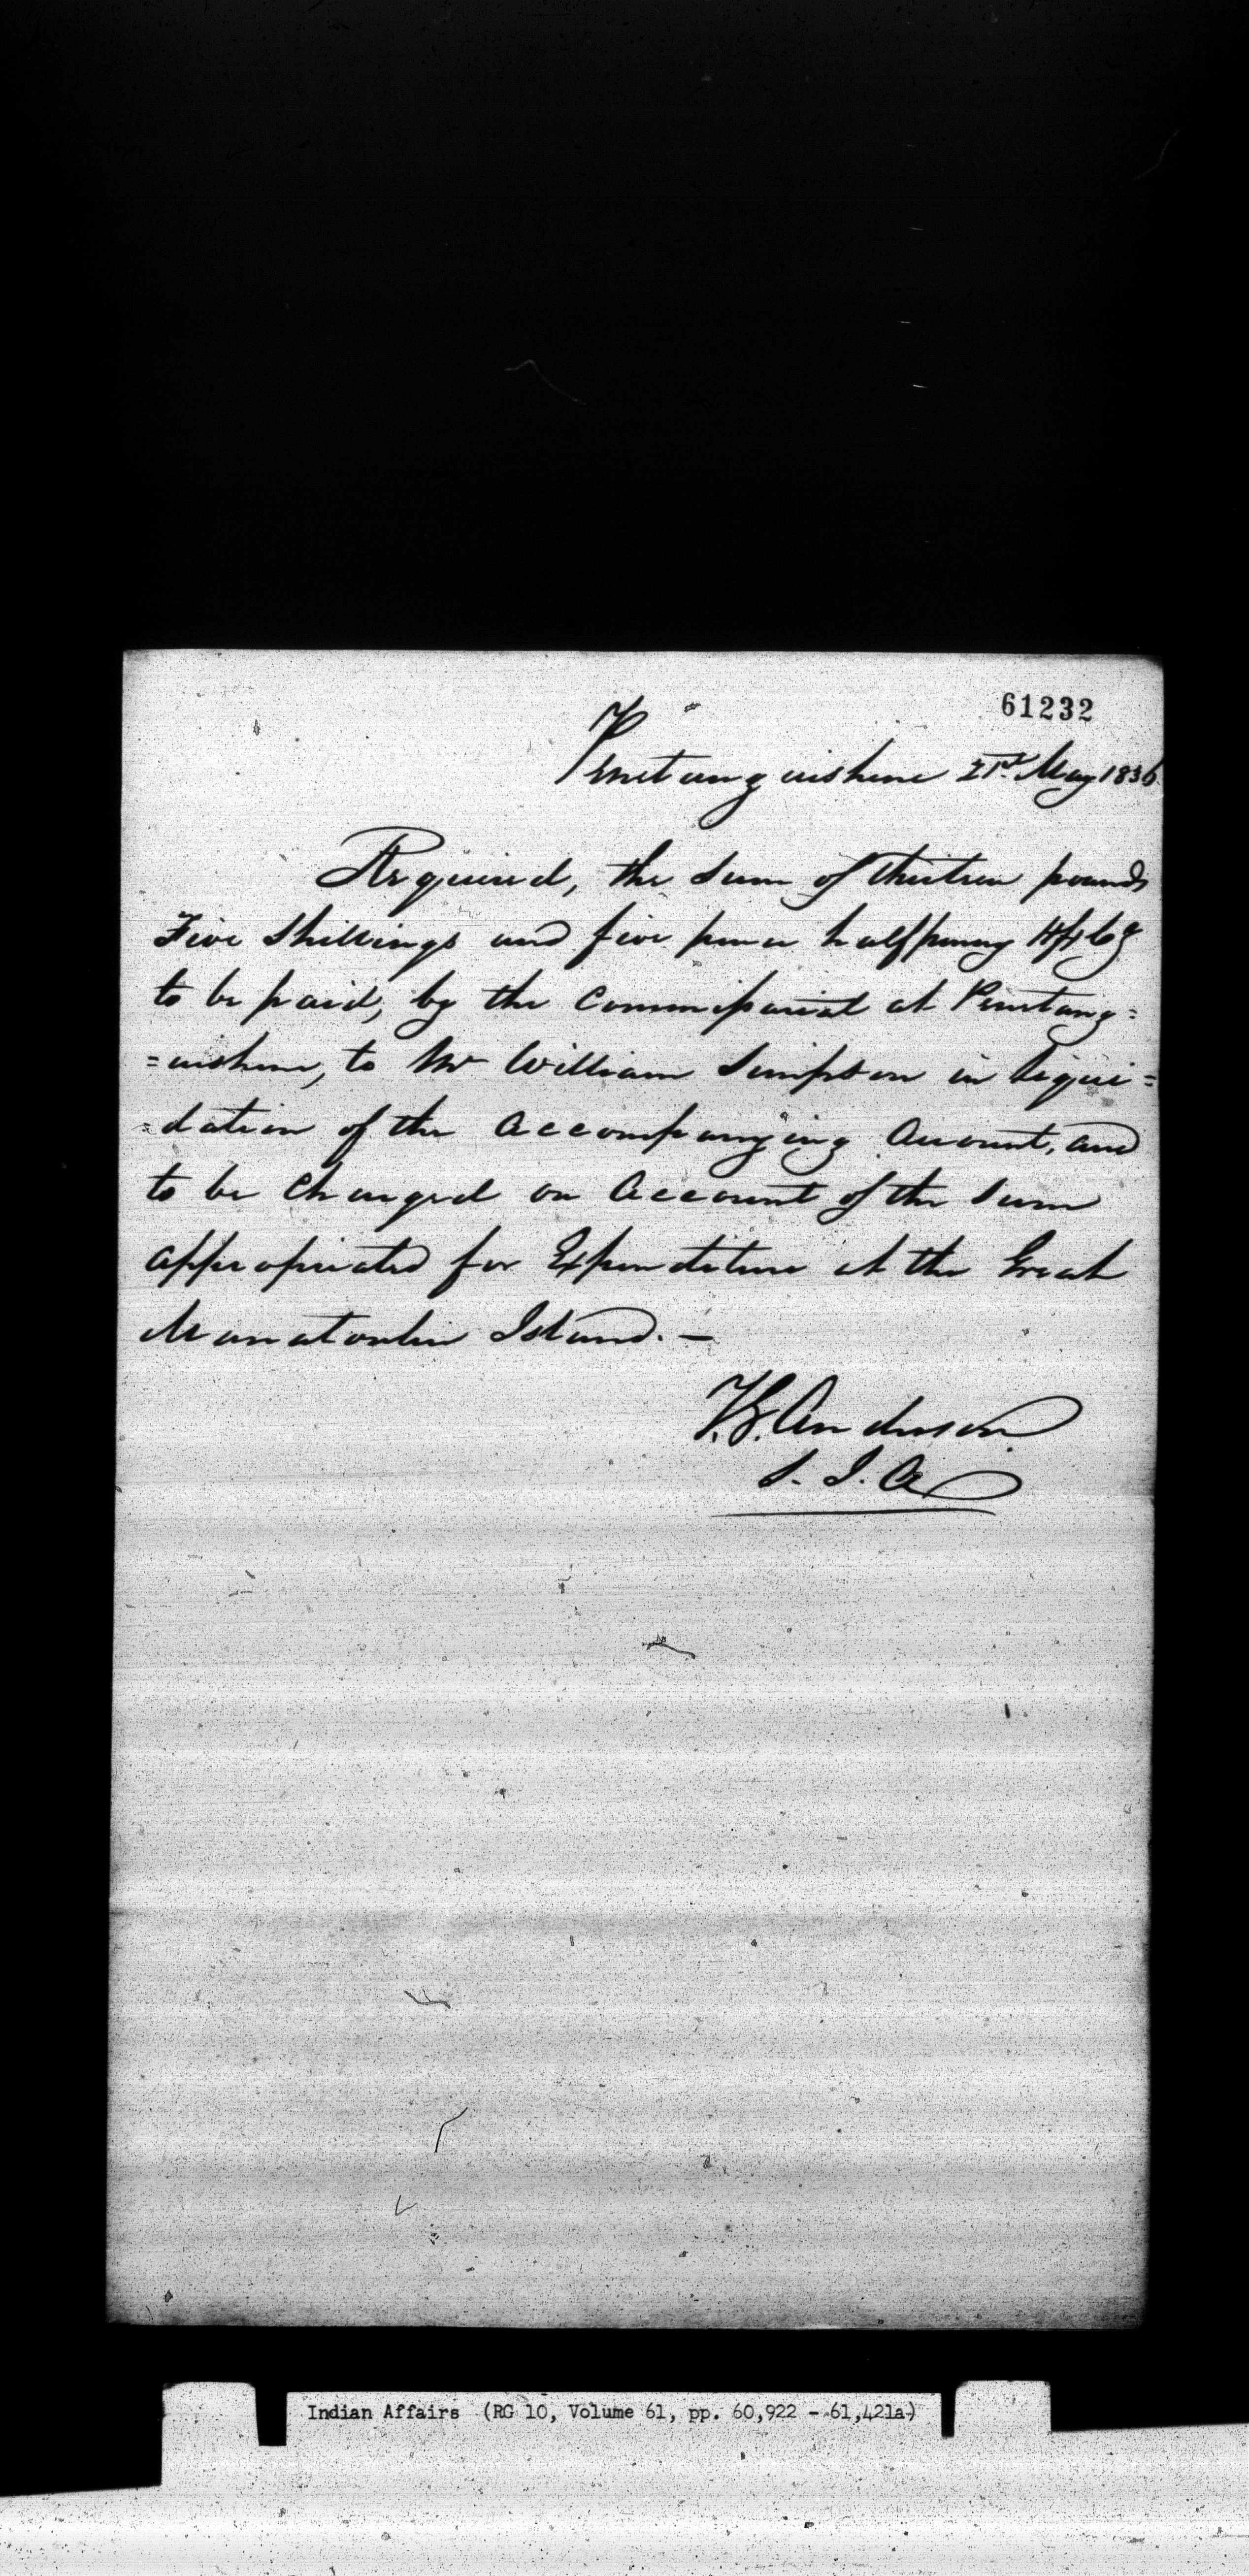 61232
Penetanguishine 21st May 1836
Required, the Sum of Thirteen pounds
Five Shillings and five pence halfpenny
to be paid, by the Commissariat at Penetang=
=uishine, to Mr William Simpson in liqui=
=dation of the Accompanying Account, and
to be Charged on Account of the Sum
appropriated for Expenditure at the Great
Manatoulin Island. —
T. G. Anderson
S. I. A
Indian Affairs (RG 10, Volume 61, pp. 60,922 - 61,421a)